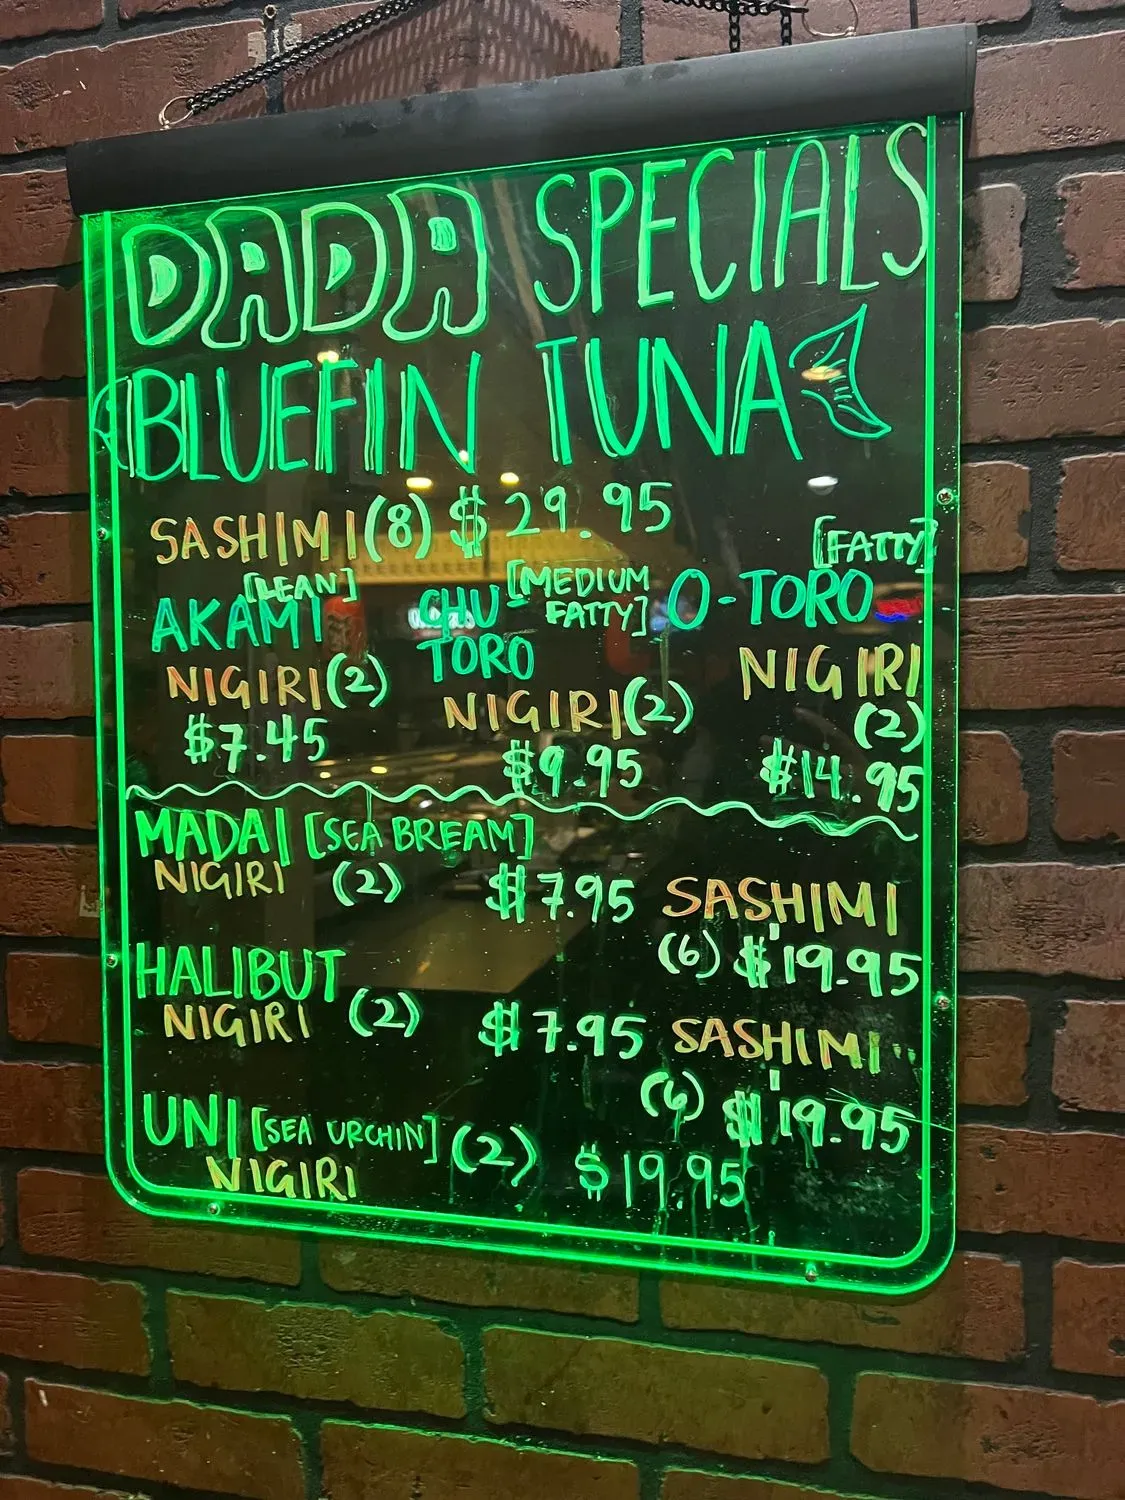 DADA SPECIALS
BLUEFIN TUNA
SASHIMI (8) $29.95
[LEAN]
AKAMI
NIGIRI (2)
$7.45
CHU- [MEDIUM FATTY]
TORO
NIGIRI (2)
$9.95
[FATTY]
O-TORO
NIGIRI
(2)
$14.95
MADAI [SEA BREAM]
NIGIRI (2) $7.95
SASHIMI
(6) $19.95
HALIBUT
NIGIRI (2) $7.95
SASHIMI
(6) $19.95
UNI [SEA URCHIN] (2) $19.95
NIGIRI